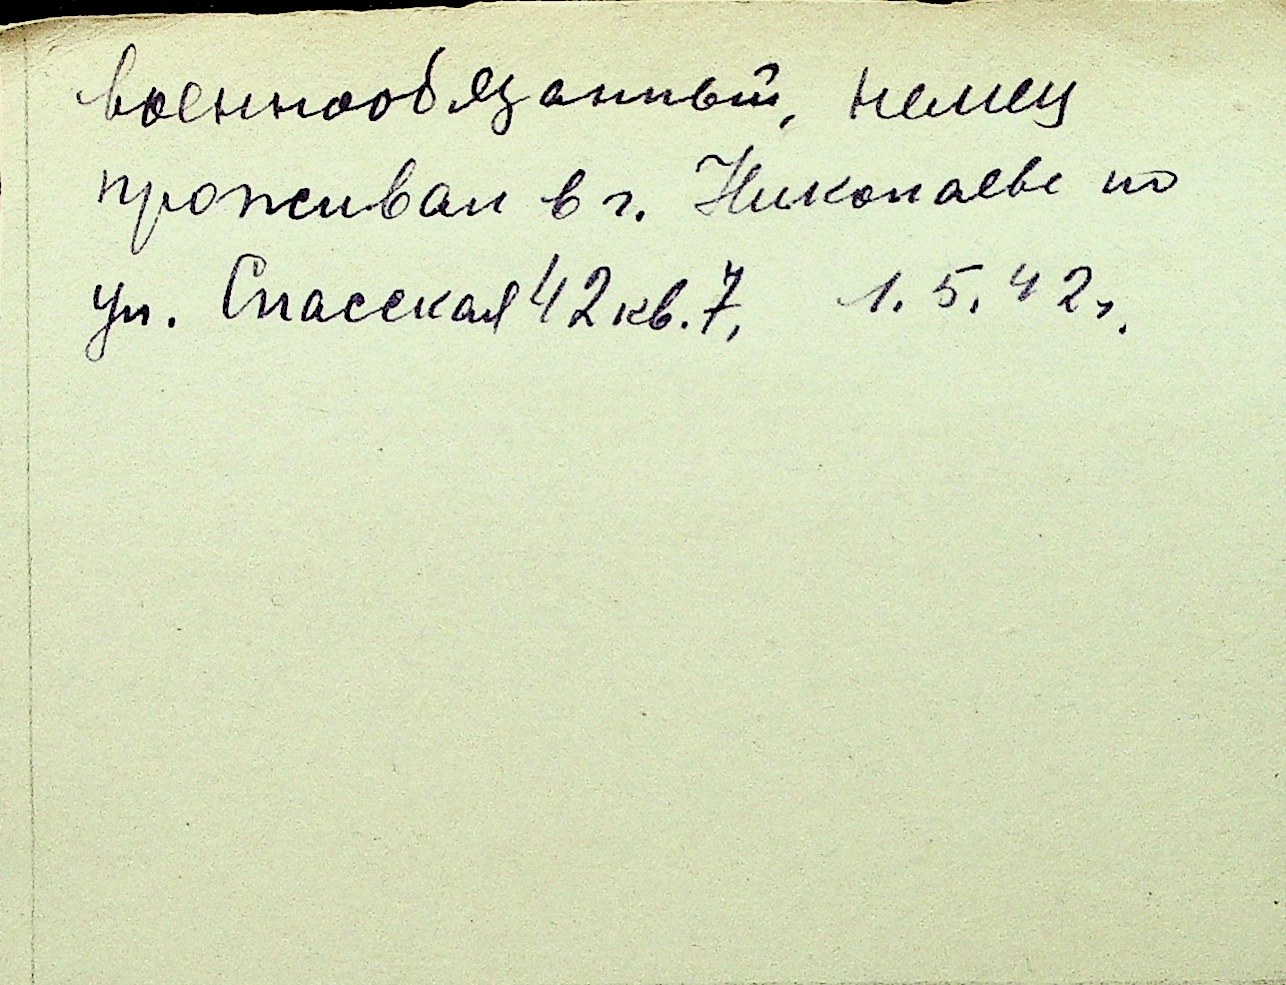 военнообязанный, немец
проживал в г. Николаеве по
ул. Спасская 42 кв. 7, 1.5.42 г.